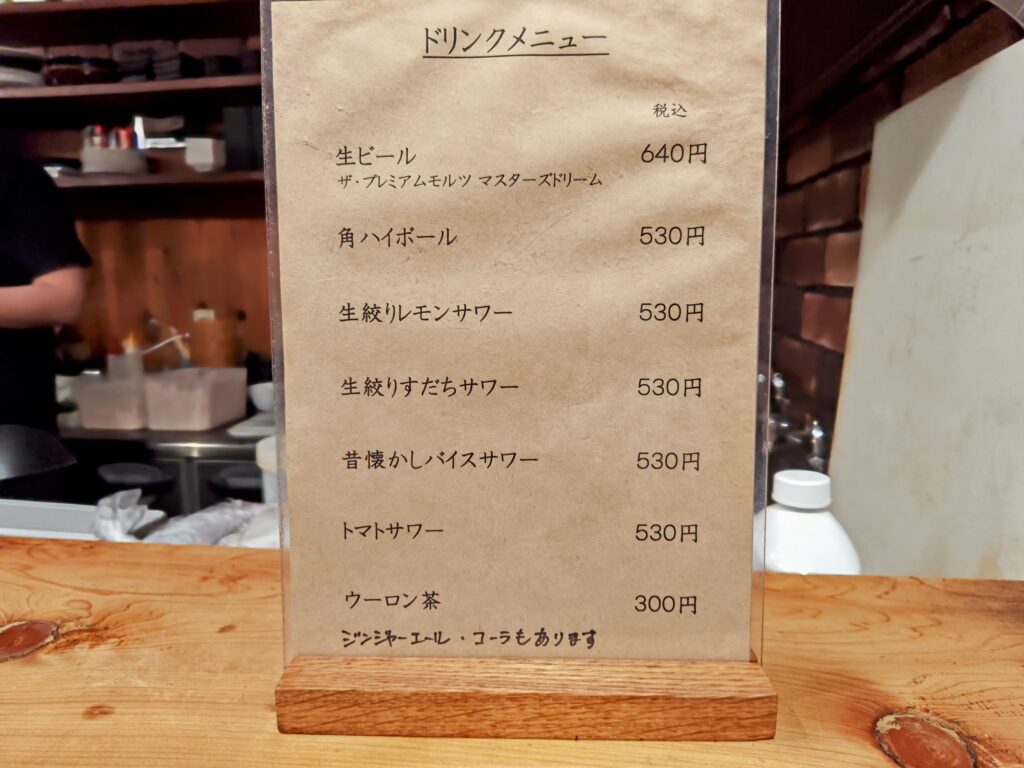 ドリンクメニュー
税込
生ビール 640円
ザ・プレミアムモルツ マスターズドリーム
角ハイボール 530円
生絞りレモンサワー 530円
生絞りすだちサワー 530円
昔懐かしバイスサワー 530円
トマトサワー 530円
ウーロン茶 300円
ジンジャーエール・コーラもあります